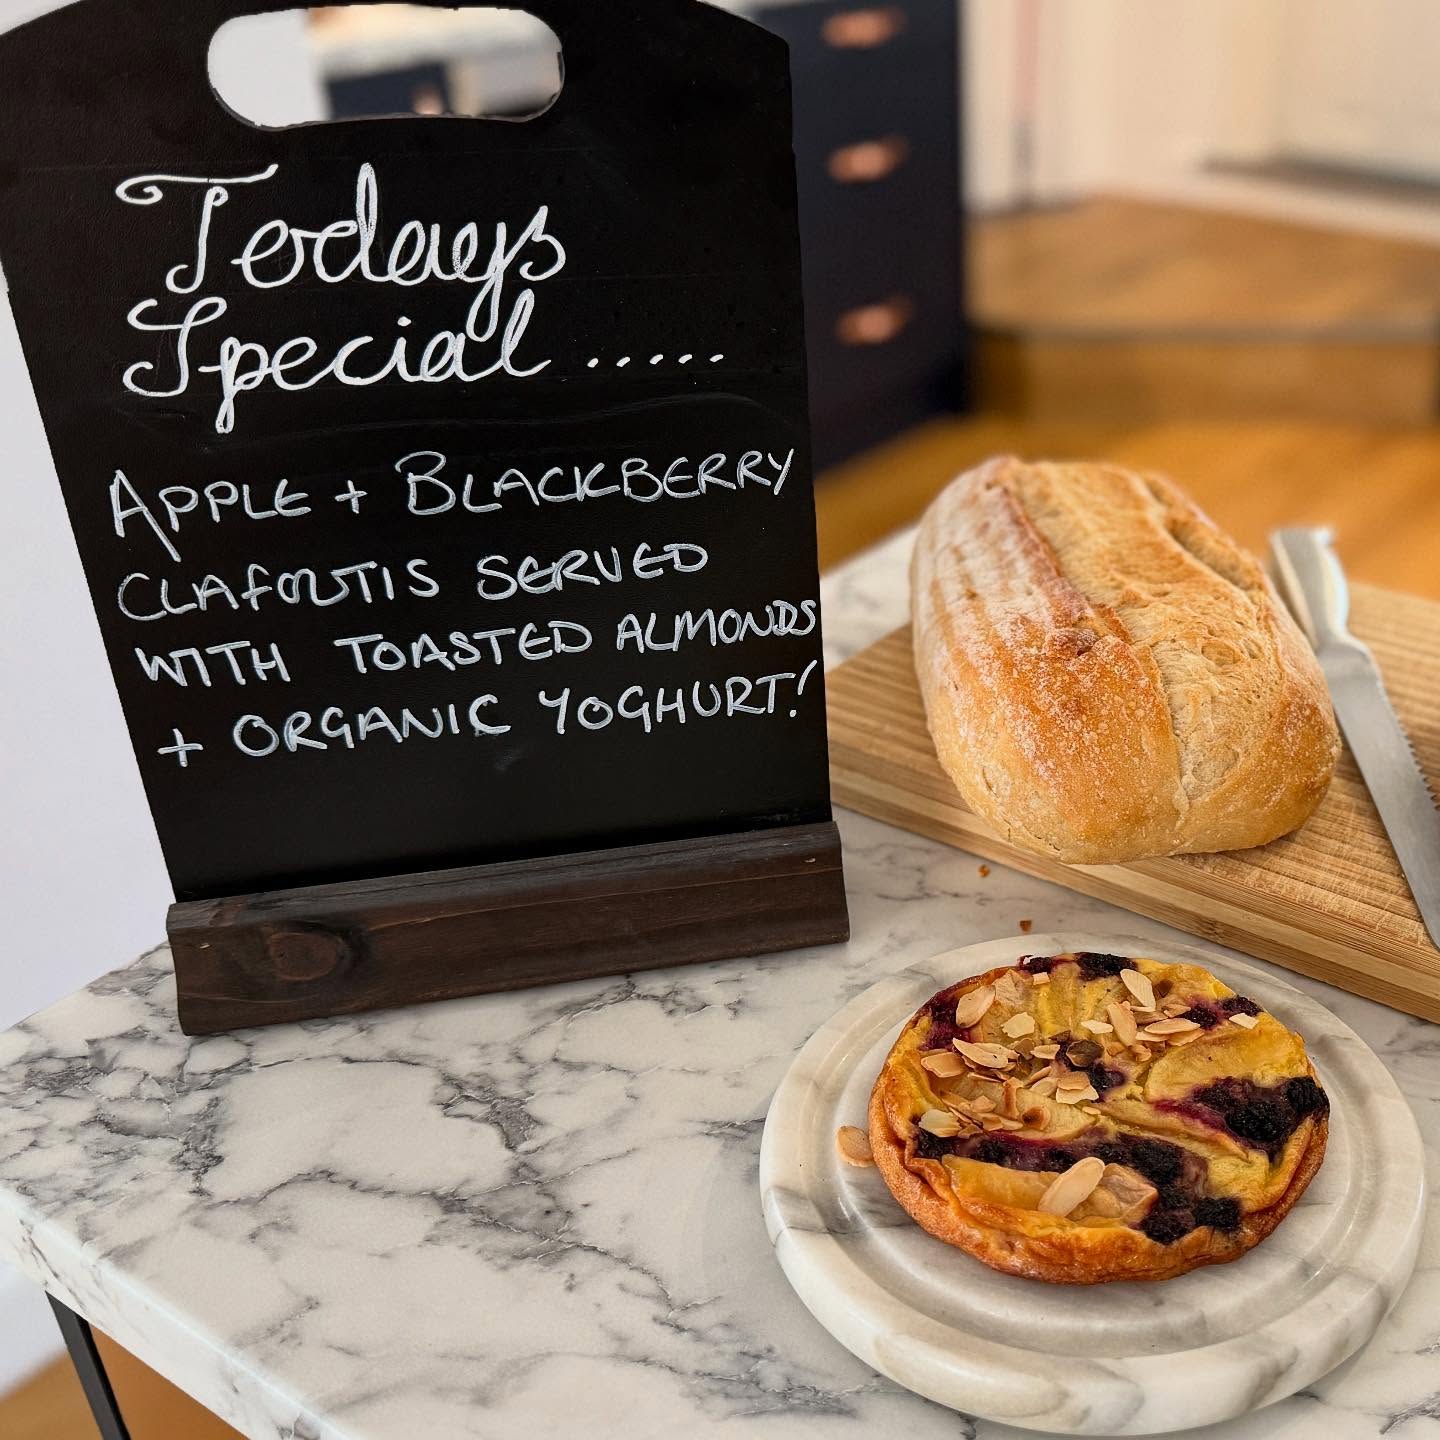 Todays
Special .....
APPLE + BLACKBERRY
CLAFOUTIS SERVED
WITH TOASTED ALMONDS
+ ORGANIC YOGHURT!